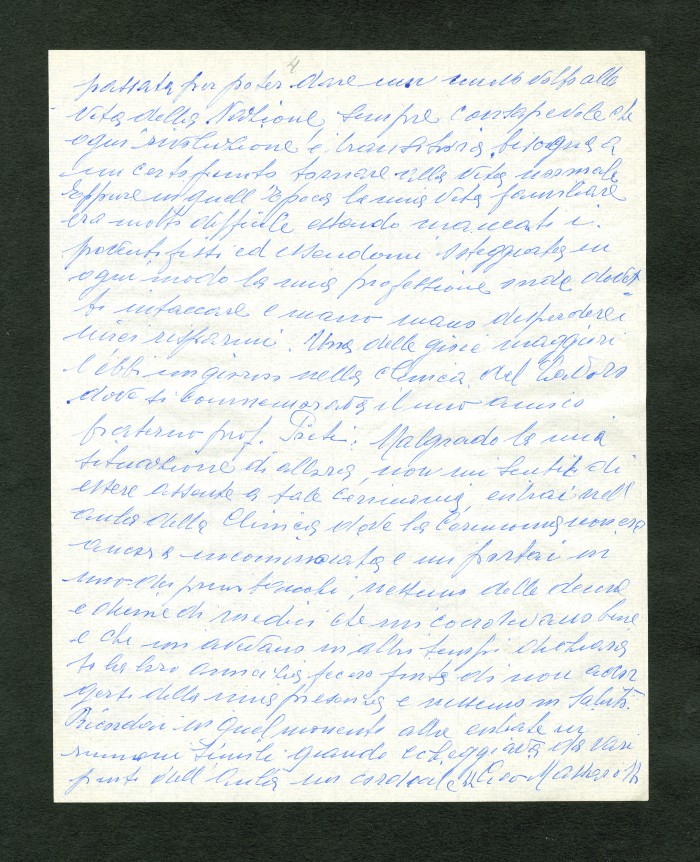 4
passata per poter dare un nuovo volto alla
vita della Nazione sempre consapevole che
ogni rivoluzione è transitoria, bisogna a
un certo punto tornare alla vita normale
Eppure in quell'epoca la mia vita familiare
era molto difficile essendo mancati i
proventi fissi ed essendomi osteggiata in
ogni modo la mia professione onde dovet
ti intaccare e mano mano disperdere i
miei risparmi. Una delle gioie maggiori
l'ebbi un giorno nella clinica del Lavoro
dove si commemorava il mio amico
fraterno prof. Preti. Malgrado la mia
situazione di allora, non mi sentii di
essere assente a tale cerimonia, entrai nell'
aula della Clinica dove la Cerimonia non era
ancora incominciata e mi portai in
uno dei primi banchi, nessuno delle decine
e decine di medici che mi conoscevano bene
e che mi avevano in altri tempi dichiara
ta la loro amicizia fecero finta di non accor
gersi della mia presenza e nessuno mi salutò.
Ricordai in quel momento alle entrate in
riunioni simili quando echeggiava da vari
punti dell'Aula un cordiale "Ciao